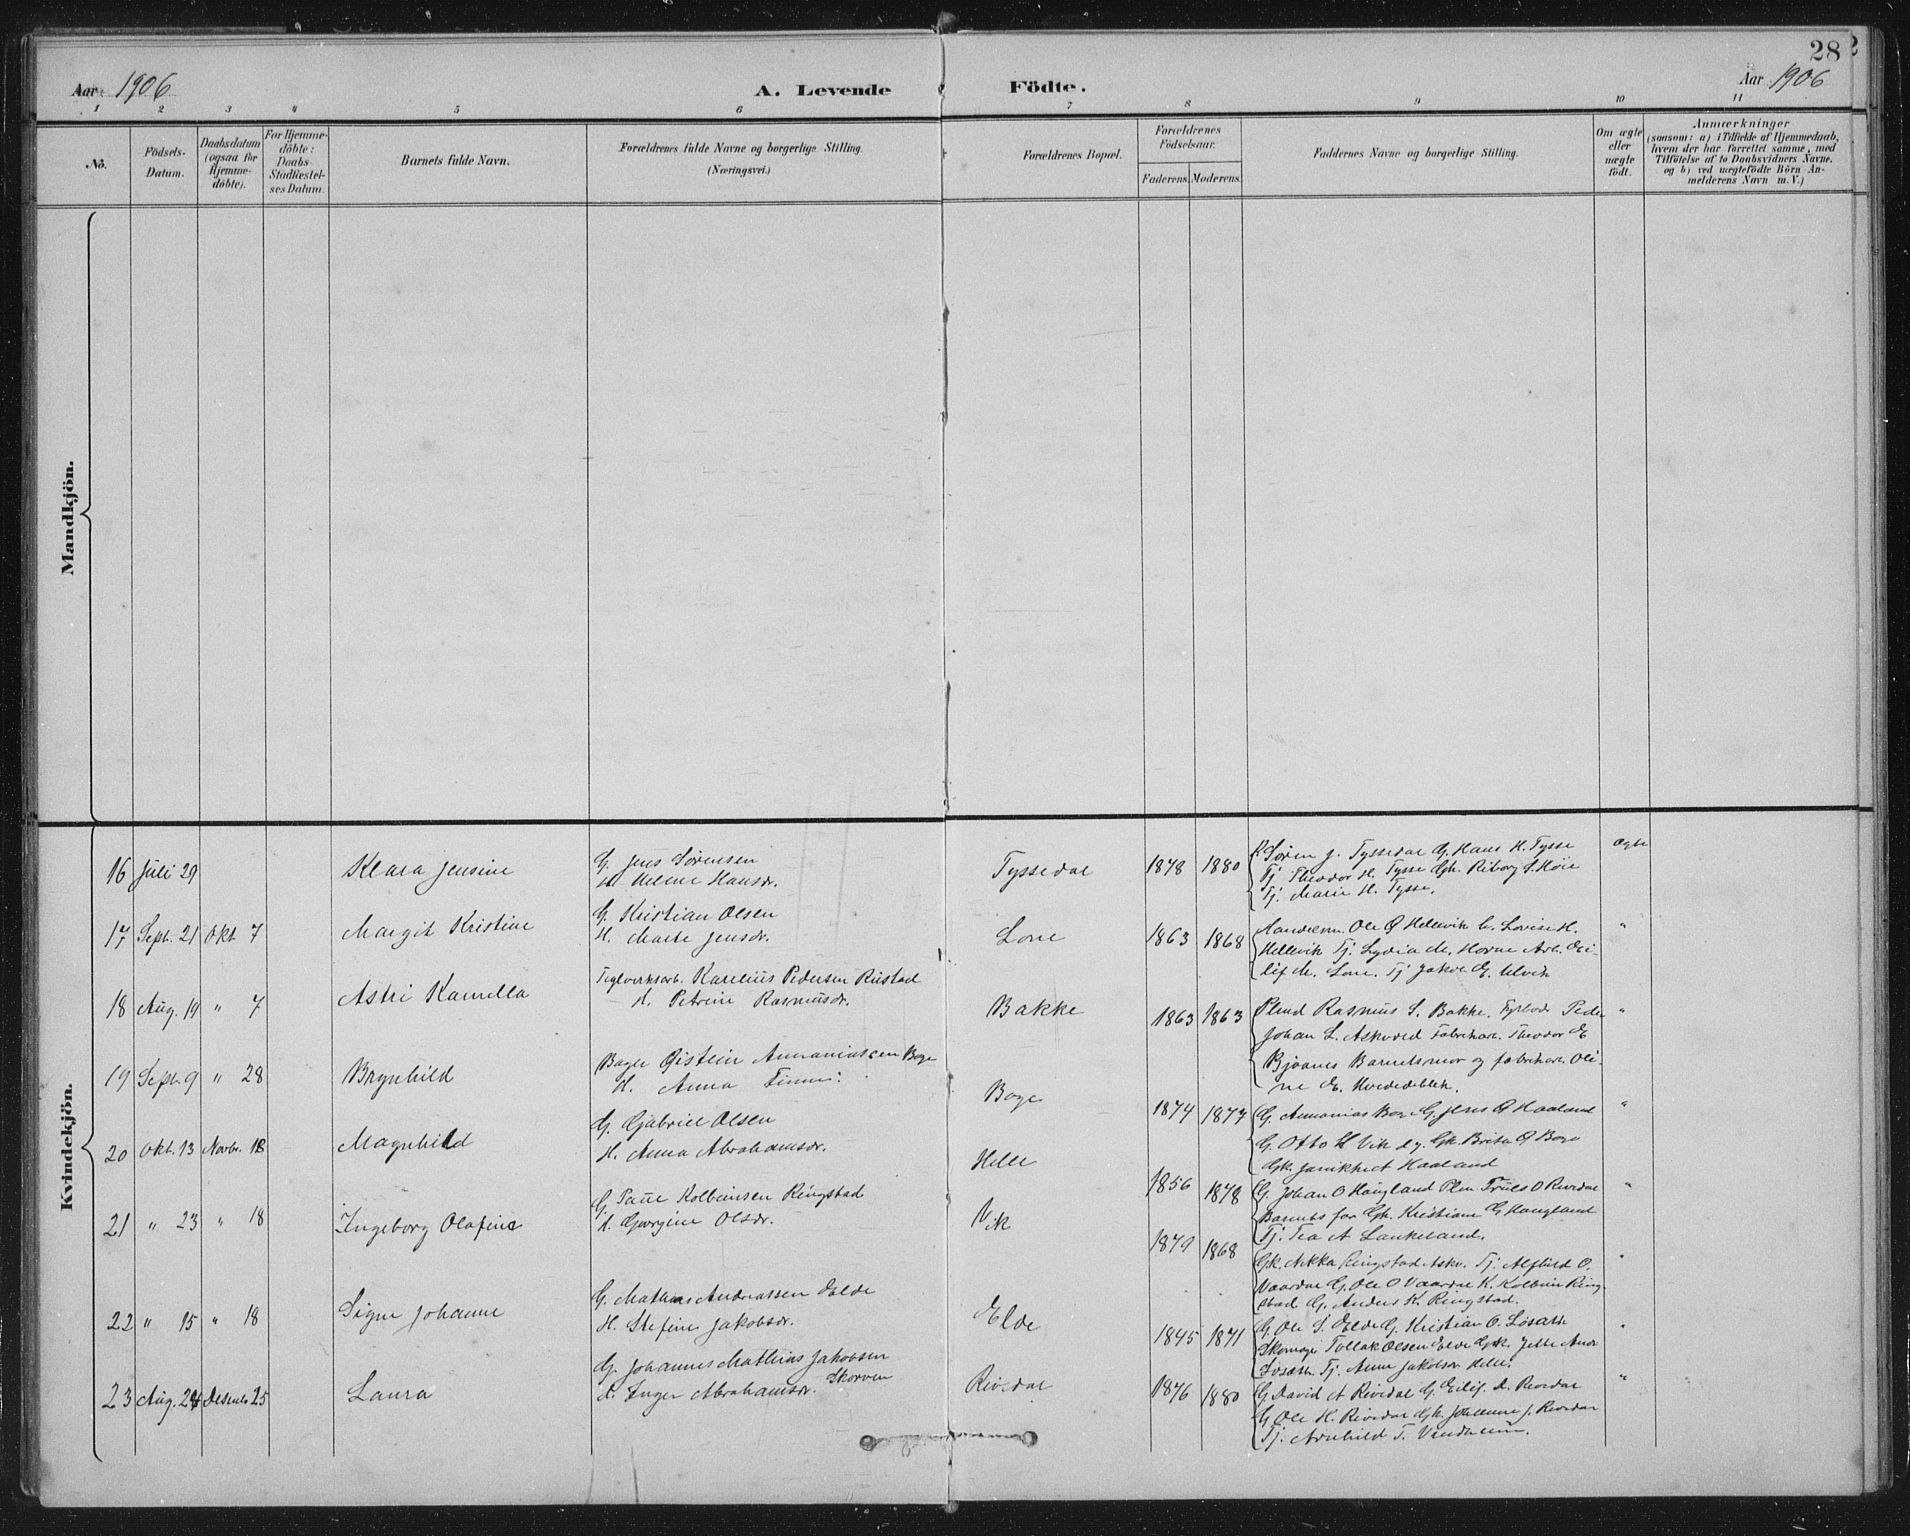 28
Aar 1906
A. Levende
Födte.
Aar 1906
1 2 3 4 5 6 7 8 9 10 11
No.
Födsels-
Datum.
Daabsdatum
(ogsaa for
Hjemme-
døbte).
For Hjemme-
döbte:
Daabs-
Stadfæstel-
ses Datum.
Barnets fulde Navn.
Forældrenes fulde Navne og borgerlige Stilling.
(Næringsvei.)
Forældrenes Bopæl.
Forældrenes
Födselsaar.
Faderens.
Moderens.
Faddernes Navne og borgerlige Stilling.
Om ægte
eller
uægte
födt.
Anmærkninger
(saasom: a) i Tilfælde af Hjemmedaab,
hvem der har forrettet samme, med
Tilföielse af to Daabsvidners Navne.
og b) ved uægtefödte Börn An-
melderens Navn m. V.)
Mandkjön.
Kvindekjön.
16 Juli 29 Klara Jensine
G. Jens Sørensen
H. Helene Hansdr.
Tyssedal 1878 1880
K. Søren J. Tyssedal G. Hans H. Tysse
Tj. Theodor H. Tysse Gk. Riborg S. Høie
Tj. Marie H. Tysse.
Ægte
17 Sept. 21 Okt 7 Margit Kristine
G. Kristian Olsen
H. Marte Jensdr.
Lone 1863 1868
Ole Ø Hellevik Lovise H.
Hellevik Tj. Lydia M. Horne Arb. Ei-
lif M. Lone. Tj Jakob E. Ulvik
"
18 Aug. 19 " 7 Astri Kamella
Teglverksarb. Karelius Pedersen Rustad
H. Petrine Rasmusdr.
Bakke 1863 1863
Rasmus S. Bakke. Peder
Johan L. Askvord Fabrikarb. Theodor E
Bjoanes Barnets mor og fabrikarb. Oli-
ne E. Hvededblek.
"
19 Sept. 9 " 28 Brynhild
Øistein Annaniassen Boge
H. Anna
Boge 1874 1877
G. Annanias Boge G. Jens Ø Haaland
G. Otto H Vik Gk. Brita Ø Boge
Gk. Janikke A Haaland
"
20 Okt. 13 Novbr. 18 Magnhild
G. Gabriel Olsen
H. Anna Abrahamsdr.
Helle 1856 1878
G. Johan O Haugland Truls O Rivedal
Barnets far Gk. Kristiane G Haugland
Tj. Tea A Lankeland.
"
21 " 23 " 18 Ingeborg Olafine
G. Paul Kolbeinsen Ringstad
H. Gjørgine Olsdr.
Vik 1879 1868
Gk. Mikka Ringstad Askv. Tj. Alfhild O.
Vaardal G. Ole O Vaardal K. Kolbein Ring-
stad G. Anders K. Ringstad.
"
22 " 15 " 18 Signe Johanne
G. Mathias Andreassen Eelde
H. Stefine Jakobsdr.
Elde 1845 1871
G. Ole S. Elde G. Kristian O. Losæth
Skomag. Tollak Olsen Elde Gk. Jette Andr
Losæth. Tj. Anne Jakobsdr Helle.
"
23 Aug. 24 Desemb. 25 Laura
G. Johannes Mathias Jakobsen
H. Inger Abrahamsdr. Skorven
Rivedal 1876 1880
G. David A Rivedal G. Eilif D. Rivedal
G. Ole H. Rivedal Gk. Johanne J. Rivedal
Tj. Arnhild T.
"